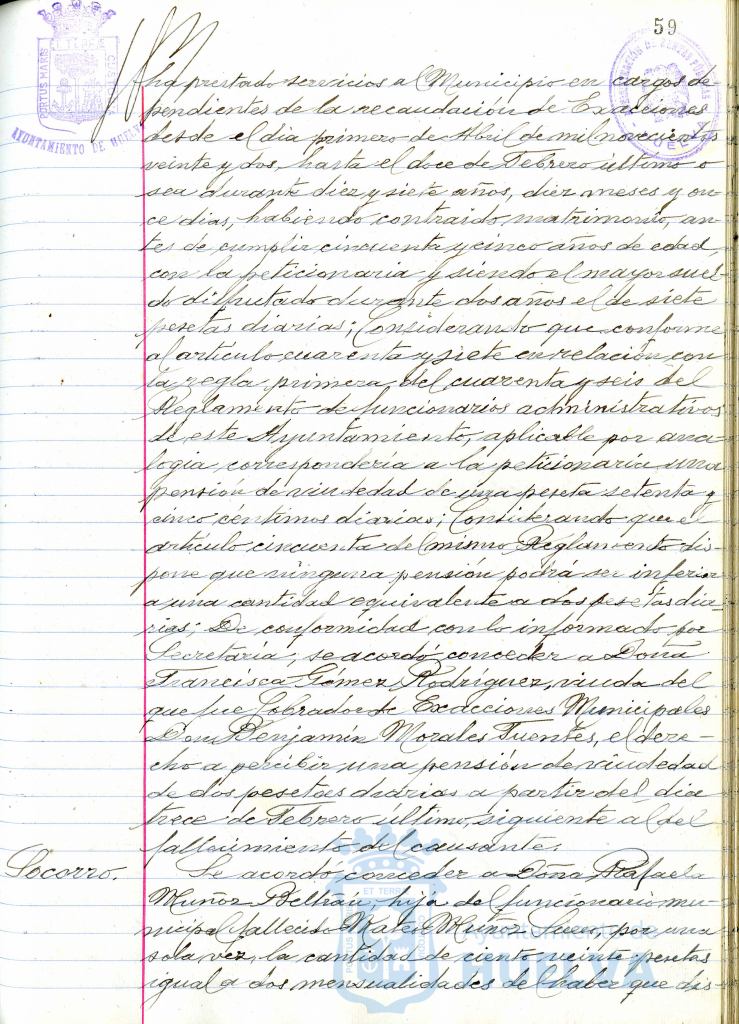 59
PORTUS MARIS ET TERRE CUSTODIA
AYUNTAMIENTO DE HUELVA
ha prestado servicios al Municipio en cargos de-
pendientes de la recaudación de Exacciones
desde el dia primero de Abril de mil novecientos
veinte y dos, hasta el doce de Febrero último o
sea durante diez y siete años, diez meses y on-
ce dias, habiendo contraido matrimonio, an-
tes de cumplir cincuenta y cinco años de edad,
con la peticionaria y siendo el mayor suel-
do disfrutado durante dos años el de siete
pesetas diarias; Considerando que conforme
al artículo cuarenta y siete en relación con
la regla primera del cuarenta y seis del
Reglamento de funcionarios administrativos
de este Ayuntamiento, aplicable por ana-
logia, correspondería a la peticionaria una
pensión de viudedad de una peseta setenta y
cinco céntimos diarias; Considerando que el
artículo cincuenta del mismo Reglamento dis-
pone que ninguna pensión podrá ser inferior
a una cantidad equivalente a dos pesetas dia-
rias; De conformidad con lo informado por
Secretaría; se acordó conceder a Doña
Francisca Gómez Rodríguez, viuda del
que fue Cobrador de Exacciones Municipales
Don Benjamín Morales Fuentes, el dere-
cho a percibir una pensión de viudedad
de dos pesetas diarias a partir del dia
trece de Febrero último, siguiente al del
fallecimiento del causante.
Socorro.
Se acordó conceder a Doña Rafaela
Muñoz Beltrán, hija del funcionario mu-
nicipal fallecido Mateo Muñoz, por una
sola vez, la cantidad de ciento veinte pesetas
igual a dos mensualidades del haber que dis-
Ayuntamiento de
HUELVA